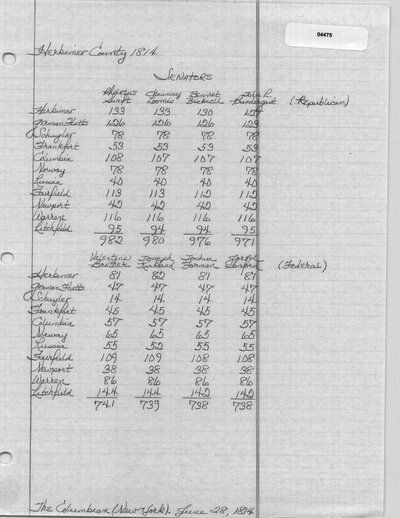 04475
Herkimer County 1814
SENATORS
Philetus Chauncey Bennet John L.
Swift Loomis Bicknell Prendergast (Republican)
Herkimer 133 133 130 127
German Flatts 126 126 126 123
Schuyler 78 78 78 78
Frankfort 53 53 53 53
Columbia 108 107 107 107
Norway 78 78 78 78
Russia 40 40 40 40
Fairfield 113 113 112 112
Newport 42 42 42 42
Warren 116 116 116 116
Litchfield 95 94 94 95
982 980 976 971
Valentine Joseph Joshua Joseph
Brother Kirkland Forman Sanford (Federal)
Herkimer 81 82 81 81
German Flatts 47 47 47 47
Schuyler 14 14 14 14
Frankfort 45 45 45 45
Columbia 57 57 57 57
Norway 65 65 65 65
Russia 55 52 55 55
Fairfield 109 109 108 108
Newport 38 38 38 38
Warren 86 86 86 86
Litchfield 144 144 142 142
741 739 738 738
The Columbian (New York). June 28, 1814